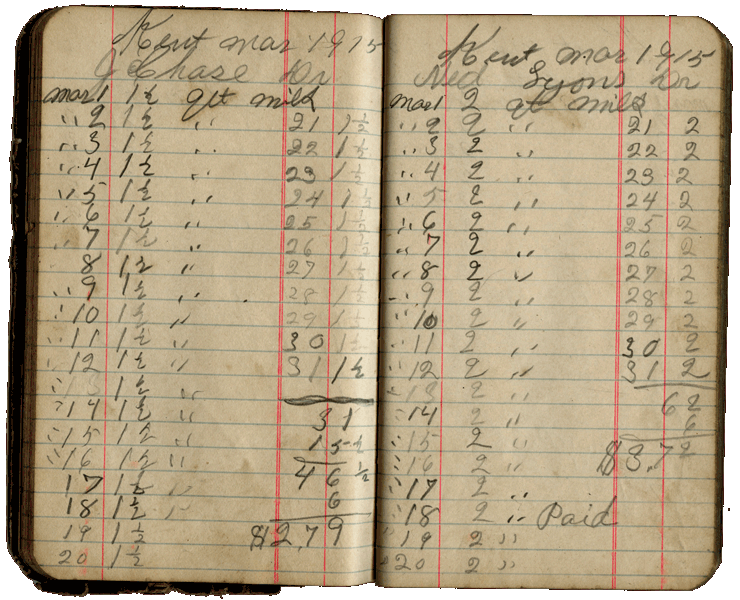 Kent mar 1915
J Chase Dr
mar 1 1½ qtt milk
" 2 1½ " 21 1½
" 3 1½ " 22 1½
" 4 1½ " 23 1½
" 5 1½ " 24 1½
" 6 1½ " 25 1½
" 7 1½ " 26 1½
" 8 1½ " 27 1½
" 9 1½ " 28 1½
" 10 1½ " 29 1½
" 11 1½ " 30 1½
" 12 1½ " 31 1½
" 13 1½ "
" 14 1½ " 31
" 15 1½ " 15½
" 16 1½ " 46½
17 1½ " 6
18 1½ "
19 1½ $2,79
20 1½
Kent mar 1915
Ned Lyons Dr
mar 1 2 qt milk
" 2 2 " 21 2
" 3 2 " 22 2
" 4 2 " 23 2
" 5 2 " 24 2
" 6 2 " 25 2
" 7 2 " 26 2
" 8 2 " 27 2
" 9 2 " 28 2
" 10 2 " 29 2
" 11 2 " 30 2
" 12 2 " 31 2
" 13 2 " 62
" 14 2 " 6
" 15 2 " $3,72
" 16 2 "
" 17 2 "
" 18 2 " Paid
" 19 2 "
" 20 2 "